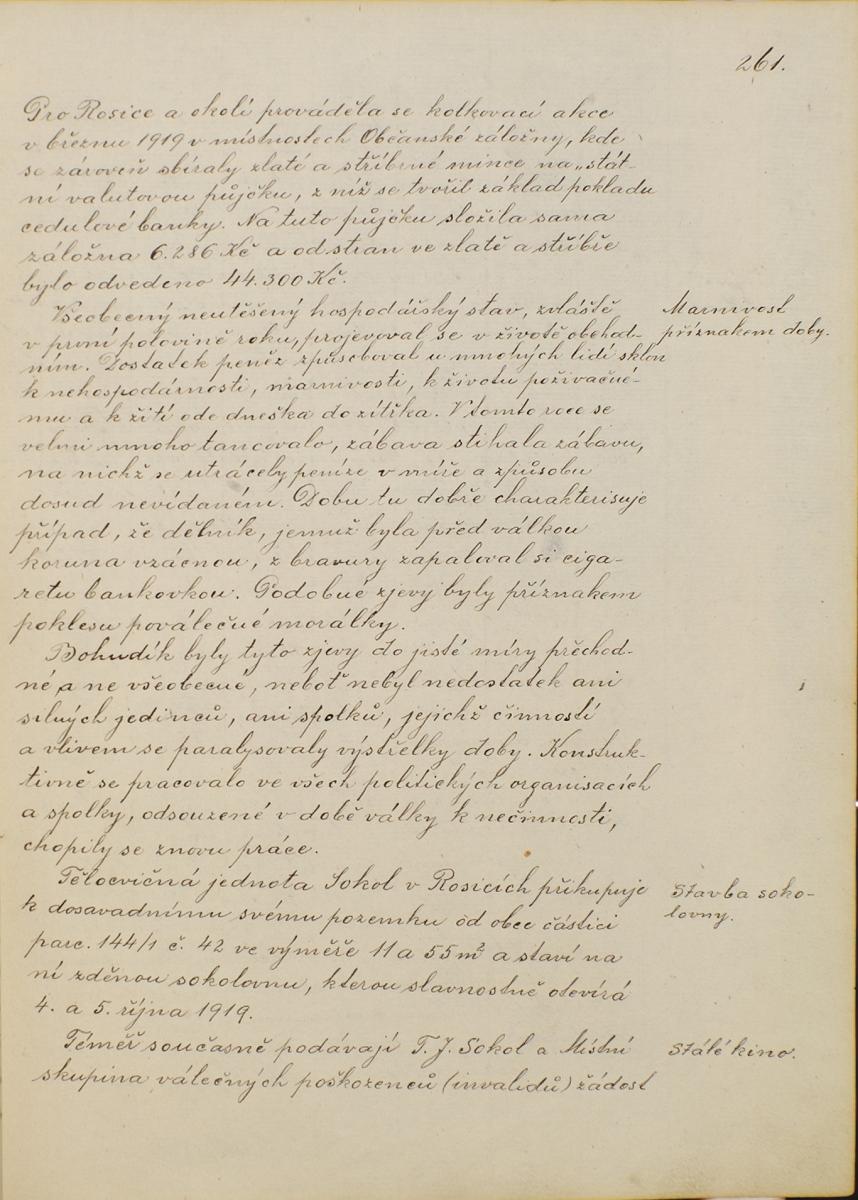 261.
Pro Rosice a okolí prováděla se kolkovací akce
v březnu 1919 v místnostech Občanské záložny, kde
se zároveň sbíraly zlaté a stříbrné mince na „stát-
ní valutovou půjčku, z níž se tvořil základ pokladu
cedulové banky. Na tuto půjčku složila sama
záložna 6.286 Kč a od stran ve zlatě a stříbře
bylo odvedeno 44.300 Kč.
Všeobecný neutěšený hospodářský stav, zvláště
v první polovině roku, projevoval se v životě obchod-
ním. Dostatek peněz způsoboval u mnohých lidí sklon
k nehospodárnosti, marnivosti, k životu poživačné-
mu a k žití ode dneška do zítřka. V tomto roce se
velmi mnoho tancovalo, zábava stíhala zábavu,
na nichž se utrácely peníze v míře a způsobu
dosud nevídaném. Dobu tu dobře charakterisuje
případ, že dělník, jemuž byla před válkou
koruna vzácnou, z bravury zapaloval si ciga-
retu bankovkou. Podobné zjevy byly příznakem
poklesu poválečné morálky.
Marnivost
příznakem doby.
Bohudík byly tyto zjevy do jisté míry přechod-
né a ne všeobecné, neboť nebyl nedostatek ani
silných jedinců, ani spolků, jejichž činností
a vlivem se paralysovaly výstřelky doby. Konstruk-
tivně se pracovalo ve všech politických organisacích
a spolky, odsouzené v době války k nečinnosti,
chopily se znovu práce.
Tělocvičná jednota Sokol v Rosicích přikupuje
k dosavadnímu svému pozemku od obce částici
parc. 144/1 č. 42 ve výměře 11 a 55 m² a staví na
ní zděnou sokolovnu, kterou slavnostně otevírá
4. a 5. října 1919.
Stavba soko-
lovny.
Téměř současně podávají T. J. Sokol a Místní
skupina válečných poškozenců (invalidů) žádost
Stálé kino.